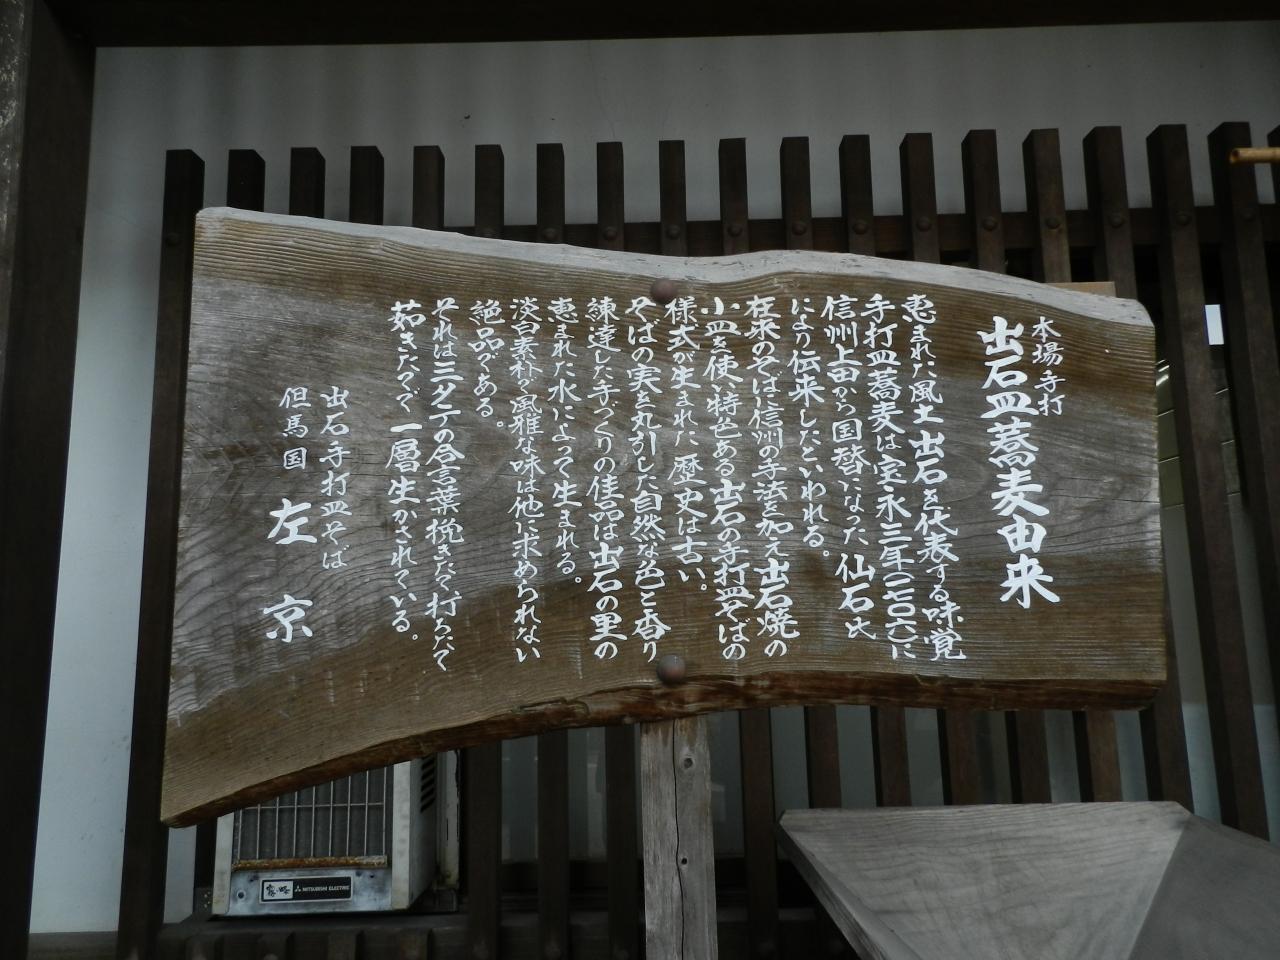 本場手打
出石皿蕎麦由来
恵まれた風土出石を代表する味覚
手打皿蕎麦は宝永三年(一七〇六)に
信州上田から国替になった仙石氏
により伝来したといわれる。
在来のそばに信州の手法を加え出石焼の
小皿を使い特色ある出石の手打皿そばの
様式が生まれた歴史は古い。
そばの実を丸引した自然な色と香り
練達した手づくりの佳品は出石の里の
恵まれた水によって生まれる。
淡白素朴で風雅な味は他に求められない
絶品である。
それは三タテの合言葉挽きたて打ちたて
茹きたてで一層生かされている。
出石手打皿そば
但馬国
左京
MITSUBISHI ELECTRIC